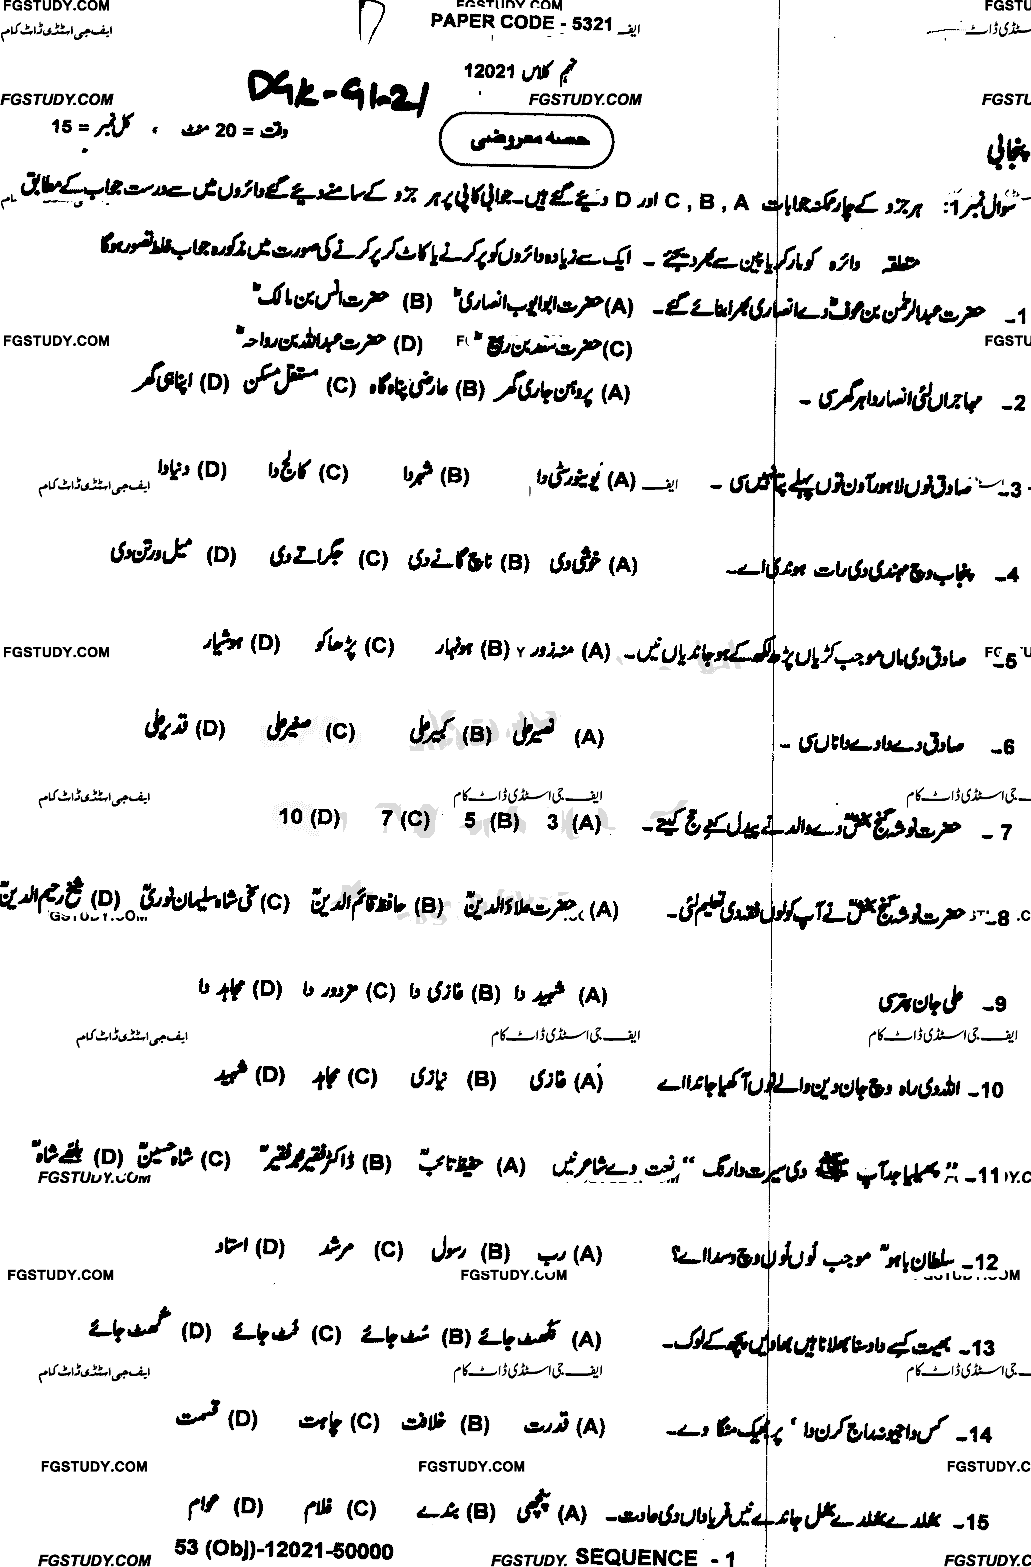 FGSTUDY.COM FGSTUDY.COM FGSTU
ایف جی اسٹڈی ڈاٹ کام PAPER CODE - 5321 ایف
نہم کلاس 12021
FGSTUDY.COM DGK-G1-21 FGSTUDY.COM FGSTU
پنجابی حصہ معروضی وقت = 20 منٹ ، کل نمبر = 15
سوال نمبر 1: ہر جزو کے چار ممکنہ جوابات A , B , C اور D دیئے گئے ہیں۔ جوابی کاپی پر ہر جزو کے سامنے دیئے گئے دائروں میں سے درست جواب کے مطابق
متعلقہ دائرہ کو مارکر یا پین سے بھر دیجئے ۔ ایک سے زیادہ دائروں کو پر کرنے یا کاٹ کر پر کرنے کی صورت میں مذکورہ جواب غلط تصور ہوگا
1۔ حضرت عبدالرحمٰن بن عوفؓ دے انصاری بھرا بنائے گئے۔ (A) حضرت ابو ایوب انصاریؓ (B) حضرت انس بن مالکؓ
FGSTUDY.COM FGSTU
(C) حضرت سعد بن ربیعؓ (D) حضرت عبداللہ بن رواحہؓ
2۔ مہاجراں لئی انصار دا ہر گھر سی ۔ (A) پروہن چاری گھر (B) عارضی پناہ گاہ (C) مستقل مسکن (D) اپنا ہی گھر
3۔ صادق نوں لاہور آون توں پہلے پتا نہیں سی ۔ (A) یونیورسٹی دا (B) شہر دا (C) کالج دا (D) دنیا دا
ایف جی اسٹڈی ڈاٹ کام
4۔ پنجاب وچ مہندی دی رات ہوندی اے۔ (A) خوشی دی (B) ناچ گانے دی (C) جگراتے دی (D) میل ورتن دی
5۔ صادق دی ماں موجب کڑیاں پڑھ لکھ کے ہو جاندیاں نیں۔ (A) منہ زور (B) ہونہار (C) پڑھاکو (D) ہوشیار
FGSTUDY.COM
6۔ صادق دے دادے دا ناں سی ۔ (A) نصیر علی (B) کبیر علی (C) صغیر علی (D) قدیر علی
ایف جی اسٹڈی ڈاٹ کام ایف جی اسٹڈی ڈاٹ کام جی اسٹڈی ڈاٹ کام
7 ۔ حضرت نوشہ گنج بخشؒ دے والد نے پیدل کنے حج کیتے۔ (A) 3 (B) 5 (C) 7 (D) 10
8۔ حضرت نوشہ گنج بخشؒ نے آپ کولوں فقہ دی تعلیم لئی۔ (A) حضرت علاؤالدینؒ (B) حافظ قائم الدینؒ (C) سخی شاہ سلیمان نوریؒ (D) شیخ رحیم الدینؒ
9۔ علی جان پتر سی (A) شہید دا (B) غازی دا (C) مزدور دا (D) مجاہد دا
ایف جی اسٹڈی ڈاٹ کام ایف جی اسٹڈی ڈاٹ کام ایف جی اسٹڈی ڈاٹ کام
10۔ اللہ دی راہ وچ جان دین والے نوں آکھیا جاندا اے (A) غازی (B) نیازی (C) مجاہد (D) شہید
11۔ " پھیلیا جد آپ ﷺ دی سیرت دا رنگ " نعت دے شاعر نیں (A) حفیظ تائبؒ (B) ڈاکٹر فقیر محمد فقیرؒ (C) شاہ حسینؒ (D) بلھے شاہؒ
FGSTUDY.COM
12۔ سلطان باہوؒ موجب لُوں لُوں وچ وسدا اے؟ (A) رب (B) رسول (C) مرشد (D) استاد
FGSTUDY.COM FGSTUDY.COM
13۔ بھیت کسے دا دسنا بھلا نا ہیں بھاویں پچھ کے لوک۔ (A) نکھٹ جائے (B) سٹ جائے (C) ٹٹ جائے (D) گھٹ جائے
ایف جی اسٹڈی ڈاٹ کام ایف جی اسٹڈی ڈاٹ کام جی اسٹڈی ڈاٹ کام
14۔ کس دا جیونہ راج کرن دا ' پر بھیک منگا دے۔ (A) قدرت (B) خلافت (C) چاہت (D) قسمت
FGSTUDY.COM FGSTUDY.COM FGSTUDY.C
15۔ بھلدے بھلدے بھل جاندے نیں فریاداں دی عادت۔ (A) پنچھی (B) بندے (C) غلام (D) عوام
53 (Obj)-12021-50000
FGSTUDY.COM FGSTUDY. SEQUENCE - 1 FGSTUDY.C